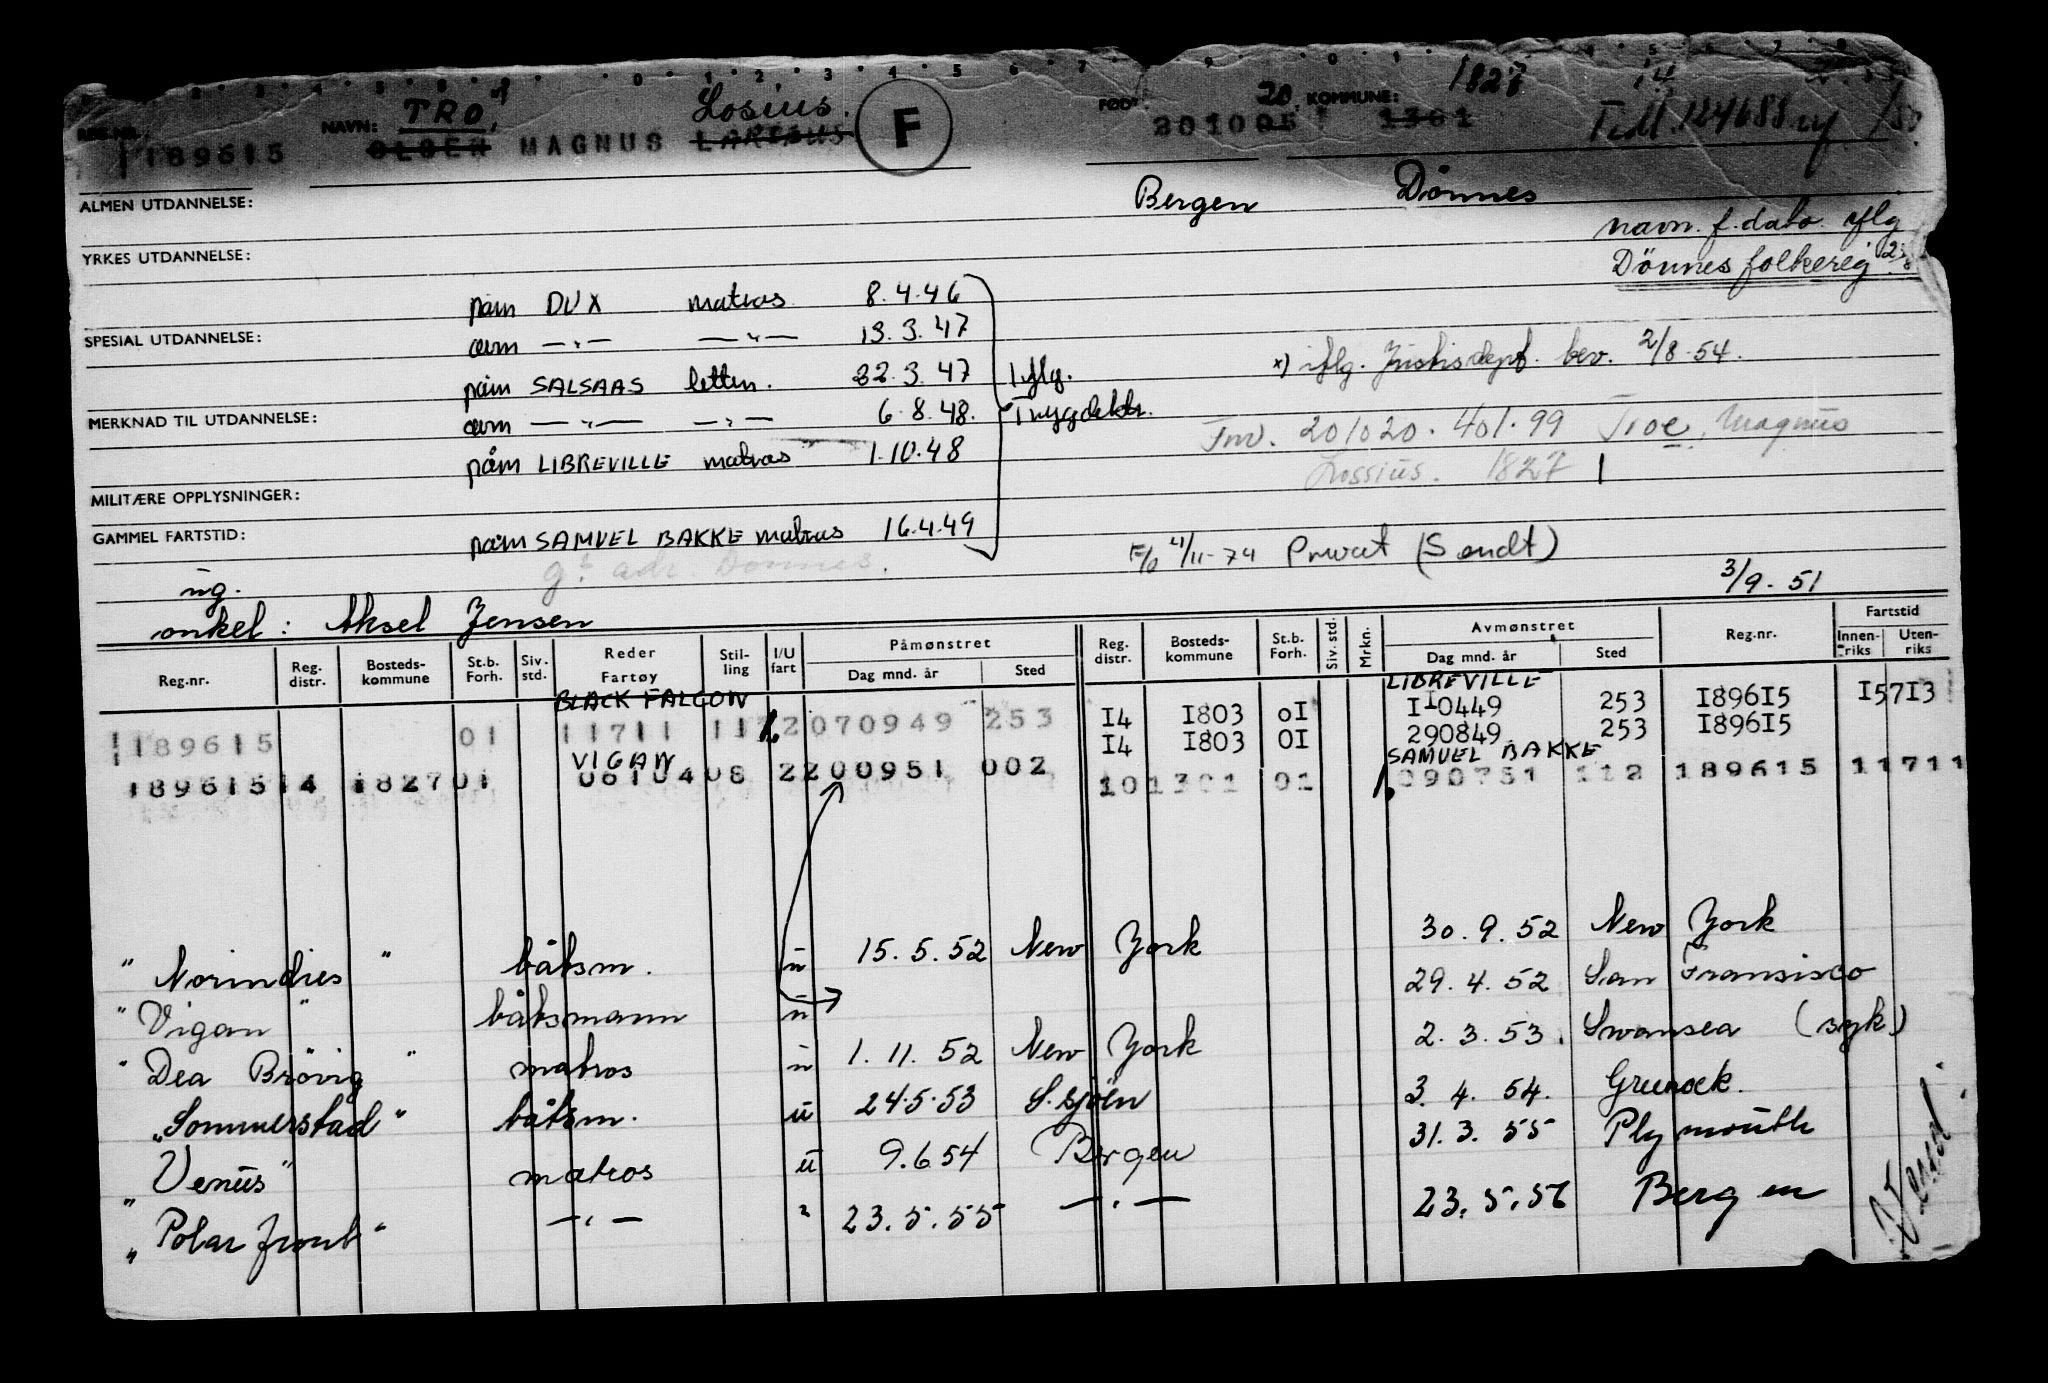 REG.NR.: 189615 NAVN: TRO, OLSEN MAGNUS Losius. LARSSUS F FØDT: 201005 20 KOMMUNE: 1301 1827 14
Tidl. 124688
ALMEN UTDANNELSE: Bergen Dönnes
navn. f. dato iflg
YRKES UTDANNELSE: Dönnes folkereg
påm DUX matros 8.4.46
SPESIAL UTDANNELSE: avm —"— —"— 13.3.47
*) iflg. Justisdept. bev. 2/8-54.
påm SALSAAS lettm. 22.3.47 Iflg.
MERKNAD TIL UTDANNELSE: avm —"— —"— 6.8.48. Trygdektr.
201020. 401.99 Troe, Magnus
påm LIBREVILLE matros 1.10.48
Lossius. 1827
MILITÆRE OPPLYSNINGER:
GAMMEL FARTSTID: påm SAMUEL BAKKE matros 16.4.49
F/b 4/11-74 Privat (Sendt)
gt. adr. Dönnes.
ug. 3/9-51
onkel: Aksel Jensen
Reg.nr. Reg. distr. Bosteds- kommune St.b. Forh. Siv. std. Reder Fartøy Stil- ling I/U fart Påmønstret Dag mnd. år Sted Reg. distr. Bosteds- kommune St.b. Forh. Siv. std. Mrkn. Avmønstret Dag mnd. år Sted Reg.nr. Fartstid Innen- riks Uten- riks
BLACK FALCON LIBREVILLE
189615 01 11711 11 2070949 253 14 1803 01 110449 253 189615 15713
14 1803 01 290849 253 189615
VIGAN SAMUEL BAKKE
189615 14 1827 01 0610408 2200951 002 10 1301 01 090751 112 189615 11711
" Norindies " båtsm. u 15.5.52 New York 30.9.52 New York
" Vigan " båtsmann u 29.4.52 San Fransisco
" Dea Brövig " matros u 1.11.52 New York 2.3.53. Swansea (syk)
"Sommerstad" båtsm. u 24.5.53 S.sjöen 3.4.54. Grunock.
"Venus" matros u 9.6.54 Bergen 31.3.55 Plymouth
"Polarfront" —"— " 23.5.55 —"— 23.5.56 Bergen
Vend.